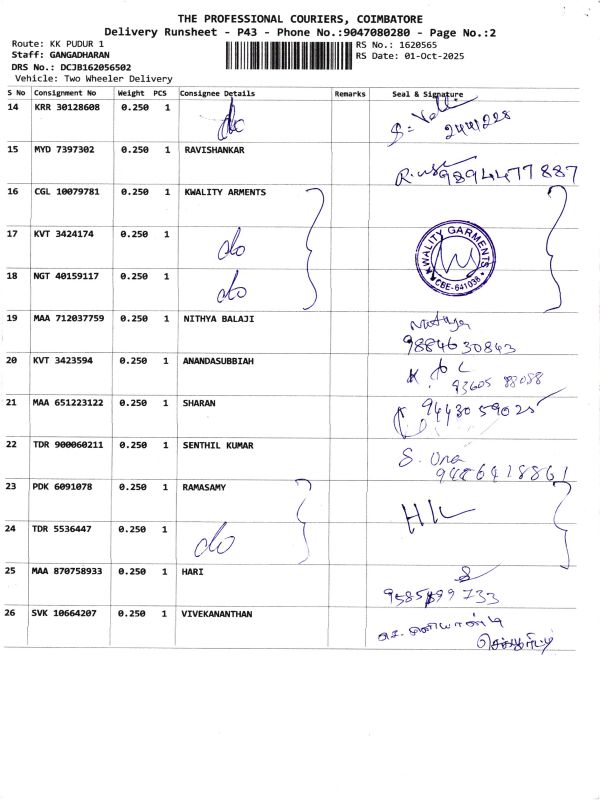 THE PROFESSIONAL COURIERS, COIMBATORE
Delivery Runsheet - P43 - Phone No.:9047080280 - Page No.:2
Route: KK PUDUR 1
RS No.: 1620565
Staff: GANGADHARAN
RS Date: 01-Oct-2025
DRS No.: DCJB162056502
Vehicle: Two Wheeler Delivery
S No Consignment No Weight PCS Consignee Details Remarks Seal & Signature
14 KRR 30128608 0.250 1 do
2441228
15 MYD 7397302 0.250 1 RAVISHANKAR
9894477887
16 CGL 10079781 0.250 1 KWALITY ARMENTS
17 KVT 3424174 0.250 1 do
KWALITY GARMENTS
CBE-641038
18 NGT 40159117 0.250 1 do
19 MAA 712037759 0.250 1 NITHYA BALAJI
9884630843
20 KVT 3423594 0.250 1 ANANDASUBBIAH
93605 88088
21 MAA 651223122 0.250 1 SHARAN
9443059025
22 TDR 900060211 0.250 1 SENTHIL KUMAR
S. Uma
9486418861
23 PDK 6091078 0.250 1 RAMASAMY
24 TDR 5536447 0.250 1 do
25 MAA 870758933 0.250 1 HARI
26 SVK 10664207 0.250 1 VIVEKANANTHAN